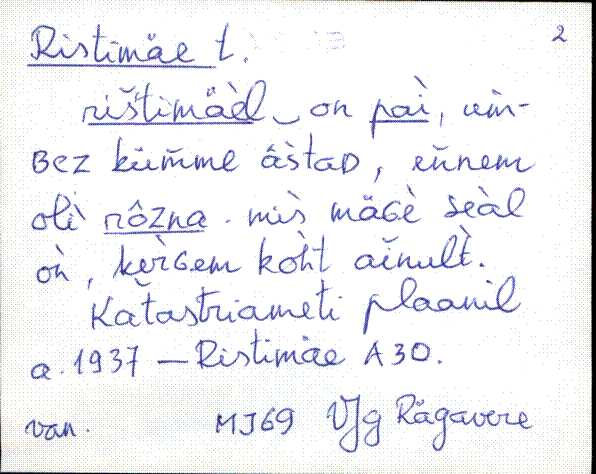 Ristimäe t. 2
rištimäèl on pài, üm̆-
BEZ küm̆me âstaD, eňnem
olì rôzna. mis̀ mäGè seàl
oǹ, kèrGem koht aĭnult̀.
Kat̆astriameti plaanil
a. 1937 — Ristimäe A30.
van. MJ69 VJg Rägavere